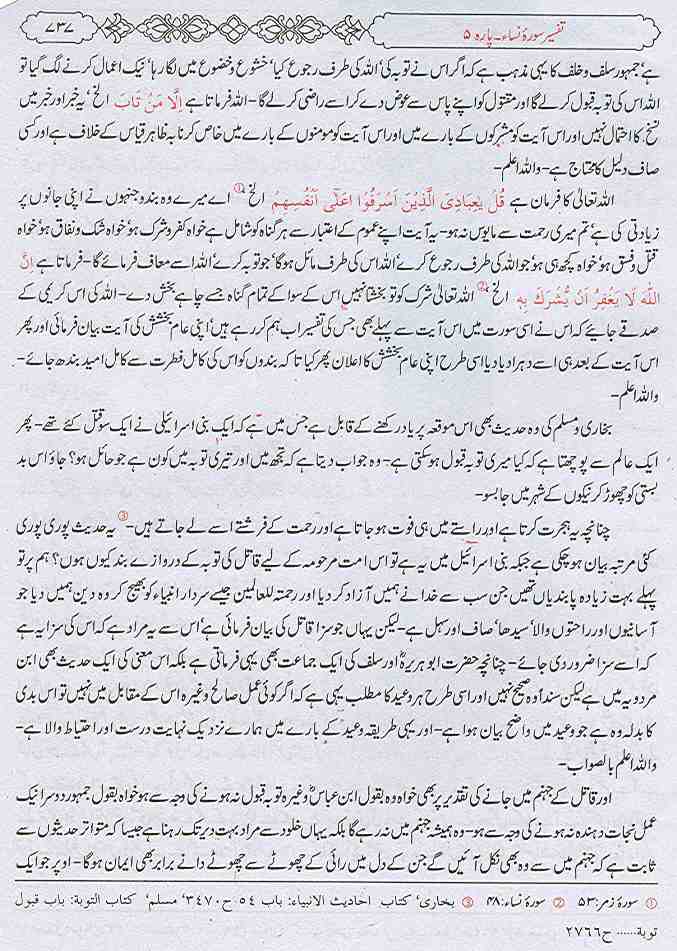 ۷۳۷
تفسیر سورۂ نساء۔ پارہ ۵
ہے‘ جمہور سلف و خلف کا یہی مذہب ہے کہ اگر اس نے توبہ کی‘ اللہ کی طرف رجوع کیا‘ خشوع و خضوع میں لگا رہا‘ نیک اعمال کرنے لگ گیا تو
اللہ اس کی توبہ قبول کر لے گا اور مقتول کو اپنے پاس سے عوض دے کر اسے راضی کر لے گا - اللہ فرماتا ہے اِلَّا مَنْ تَابَ الخ‘ یہ خبر اور خبر میں
نسخ‘ کا احتمال نہیں اور اس آیت کو مشرکوں کے بارے میں اور اس آیت کو مومنوں کے بارے میں خاص کرنا بہ ظاہر قیاس کے خلاف ہے اور کسی
صاف دلیل کا محتاج ہے - واللہ اعلم -
اللہ تعالیٰ کا فرمان ہے قُلْ یٰعِبَادِیَ الَّذِیْنَ اَسْرَفُوْا اعَلٰٓی اَنْفُسِهِمْ الخ ① اے میرے وہ بندو جنہوں نے اپنی جانوں پر
زیادتی کی ہے‘ تم میری رحمت سے مایوس نہ ہو - یہ آیت اپنے عموم کے اعتبار سے ہر گناہ کو شامل ہے خواہ کفر و شرک ہو‘ خواہ شک و نفاق ہو‘ خواہ
قتل و فسق ہو‘ خواہ کچھ ہی ہو‘ جو اللہ کی طرف رجوع کرے‘ اللہ اس کی طرف مائل ہوگا‘ جو توبہ کرے‘ اللہ اسے معاف فرمائے گا - فرماتا ہے اِنَّ
اللّٰهَ لَا یَغْفِرُ اَنْ یُّشْرَكَ بِهٖ الخ ② اللہ تعالیٰ شرک کو تو بخشتا نہیں‘ اس کے سوا کے تمام گناہ جسے چاہے بخش دے - اللہ کی اس کریمی کے
صدقے جائیے کہ اس نے اسی سورت میں اس آیت سے پہلے بھی جس کی تفسیر اب ہم کر رہے ہیں‘ اپنی عام بخشش کی آیت بیان فرمائی اور پھر
اس آیت کے بعد ہی اسے دہرا دیا دیا اسی طرح اپنی عام بخشش کا اعلان پھر کیا تا کہ بندوں کو اس کی کامل فطرت سے کامل امید بندھ جائے -
واللہ اعلم -
بخاری و مسلم کی وہ حدیث بھی اس موقعہ پر یاد رکھنے کے قابل ہے جس میں ہے کہ ایک بنی اسرائیلی نے ایک سو قتل کئے تھے - پھر
ایک عالم سے پوچھتا ہے کہ کیا میری توبہ قبول ہو سکتی ہے - وہ جواب دیتا ہے کہ تجھ میں اور تیری توبہ میں کون ہے جو حائل ہو؟ جاؤ اس بد
بستی کو چھوڑ کر نیکوں کے شہر میں جا بسو -
چنانچہ یہ ہجرت کرتا ہے اور راستے میں ہی فوت ہو جاتا ہے اور رحمت کے فرشتے اسے لے جاتے ہیں - ③ یہ حدیث پوری پوری
کئی مرتبہ بیان ہو چکی ہے جبکہ بنی اسرائیل میں یہ ہے تو اس امت مرحومہ کے لیے قاتل کی توبہ کے دروازے بند کیوں ہوں؟ ہم پر تو
پہلے بہت زیادہ پابندیاں تھیں جن سب سے خدا نے ہمیں آزاد کر دیا اور رحمتہ للعالمین جیسے سردار انبیاء کو بھیج کر وہ دین ہمیں دیا جو
آسانیوں اور راحتوں والا‘ سیدھا‘ صاف اور سہل ہے - لیکن یہاں جو سزا قاتل کی بیان فرمائی ہے‘ اس سے یہ مراد ہے کہ اس کی سزا یہ ہے
کہ اسے سزا ضرور دی جائے - چنانچہ حضرت ابو ہریرہؓ اور سلف کی ایک جماعت بھی یہی فرماتی ہے بلکہ اس معنی کی ایک حدیث بھی ابن
مردویہ میں ہے لیکن سنداً وہ صحیح نہیں اور اسی طرح ہر وعید کا مطلب یہی ہے کہ اگر کوئی عمل صالح وغیرہ اس کے مقابل میں نہیں تو اس بدی
کا بدلہ وہ ہے جو وعید میں واضح بیان ہوا ہے - اور یہی طریقہ وعید کے بارے میں ہمارے نزدیک نہایت درست اور احتیاط والا ہے -
واللہ اعلم بالصواب -
اور قاتل کے جہنم میں جانے کی تقدیر پر بھی خواہ وہ بقول ابن عباسؓ وغیرہ توبہ قبول نہ ہونے کی وجہ سے ہو خواہ بقول جمہور دوسرا نیک
عمل نجات دہندہ نہ ہونے کی وجہ سے ہو - وہ ہمیشہ جہنم میں نہ رہے گا بلکہ یہاں خلود سے مراد بہت دیر تک رہنا ہے جیسا کہ متواتر حدیثوں سے
ثابت ہے کہ جہنم میں سے وہ بھی نکل آئیں گے جن کے دل میں رائی کے چھوٹے سے چھوٹے دانے برابر بھی ایمان ہوگا - اوپر جو ایک
① سورۂ زمر: ۵۳ ② سورۂ نساء: ۴۸ ③ بخاری‘ کتاب احادیث الانبیاء: باب ۵۴ ح ۳۴۷۰‘ مسلم‘ کتاب التوبة: باب قبول
توبة...... ح ۲۷۶۶